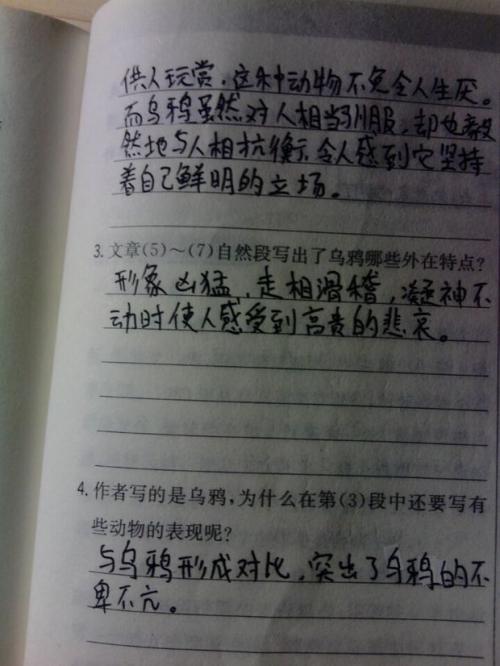 供人玩赏,这种动物不免令人生厌。
而乌鸦虽然对人相当驯服,却也毅
然地与人相抗衡,令人感到它坚持
着自己鲜明的立场。
3.文章(5)~(7)自然段写出了乌鸦哪些外在特点?
形象凶猛,走相滑稽,凝神不
动时使人感受到高贵的悲哀。
4.作者写的是乌鸦,为什么在第(3)段中还要写有
些动物的表现呢?
与乌鸦形成对比,突出了乌鸦的不
卑不亢。